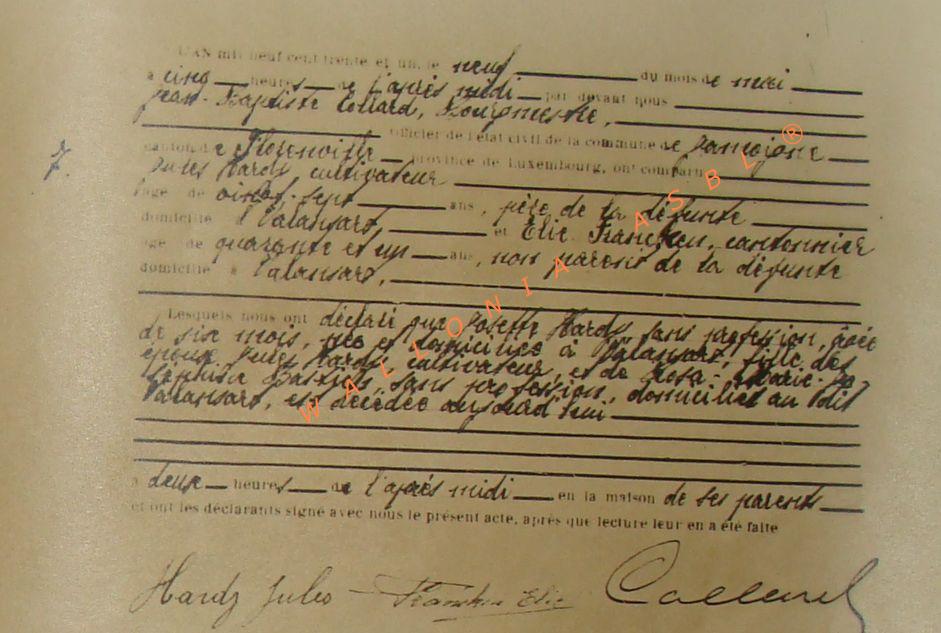 L'AN mil neuf cent trente et un, le neuf du mois de mai
à cinq heures de l'après midi par devant nous
Jean-Baptiste Collard, Bourgmestre,
Officier de l'état civil de la commune de Jamoigne
canton de Florenville province de Luxembourg, ont comparu
7.
Jules Hardy cultivateur
âgé de vingt-sept ans, père de la défunte
domicilié à Valansart, et Elie Francken, cantonnier
âgé de quarante et un ans, non parent de la défunte
domicilié à Valansart,
Lesquels nous ont déclaré que Josette Hardy, sans profession, âgée
de six mois, née et domiciliée à Valansart, fille des
époux Jules Hardy cultivateur, et de Rosa-Marie-
sans profession, domiciliés au dit
Valansart, est décédée aujourd'hui
à deux heures de l'après midi en la maison de ses parents
et ont les déclarants signé avec nous le présent acte, après que lecture leur en a été faite
Hardy Jules Francken Elie Collard
WALLONIA ASBL ®